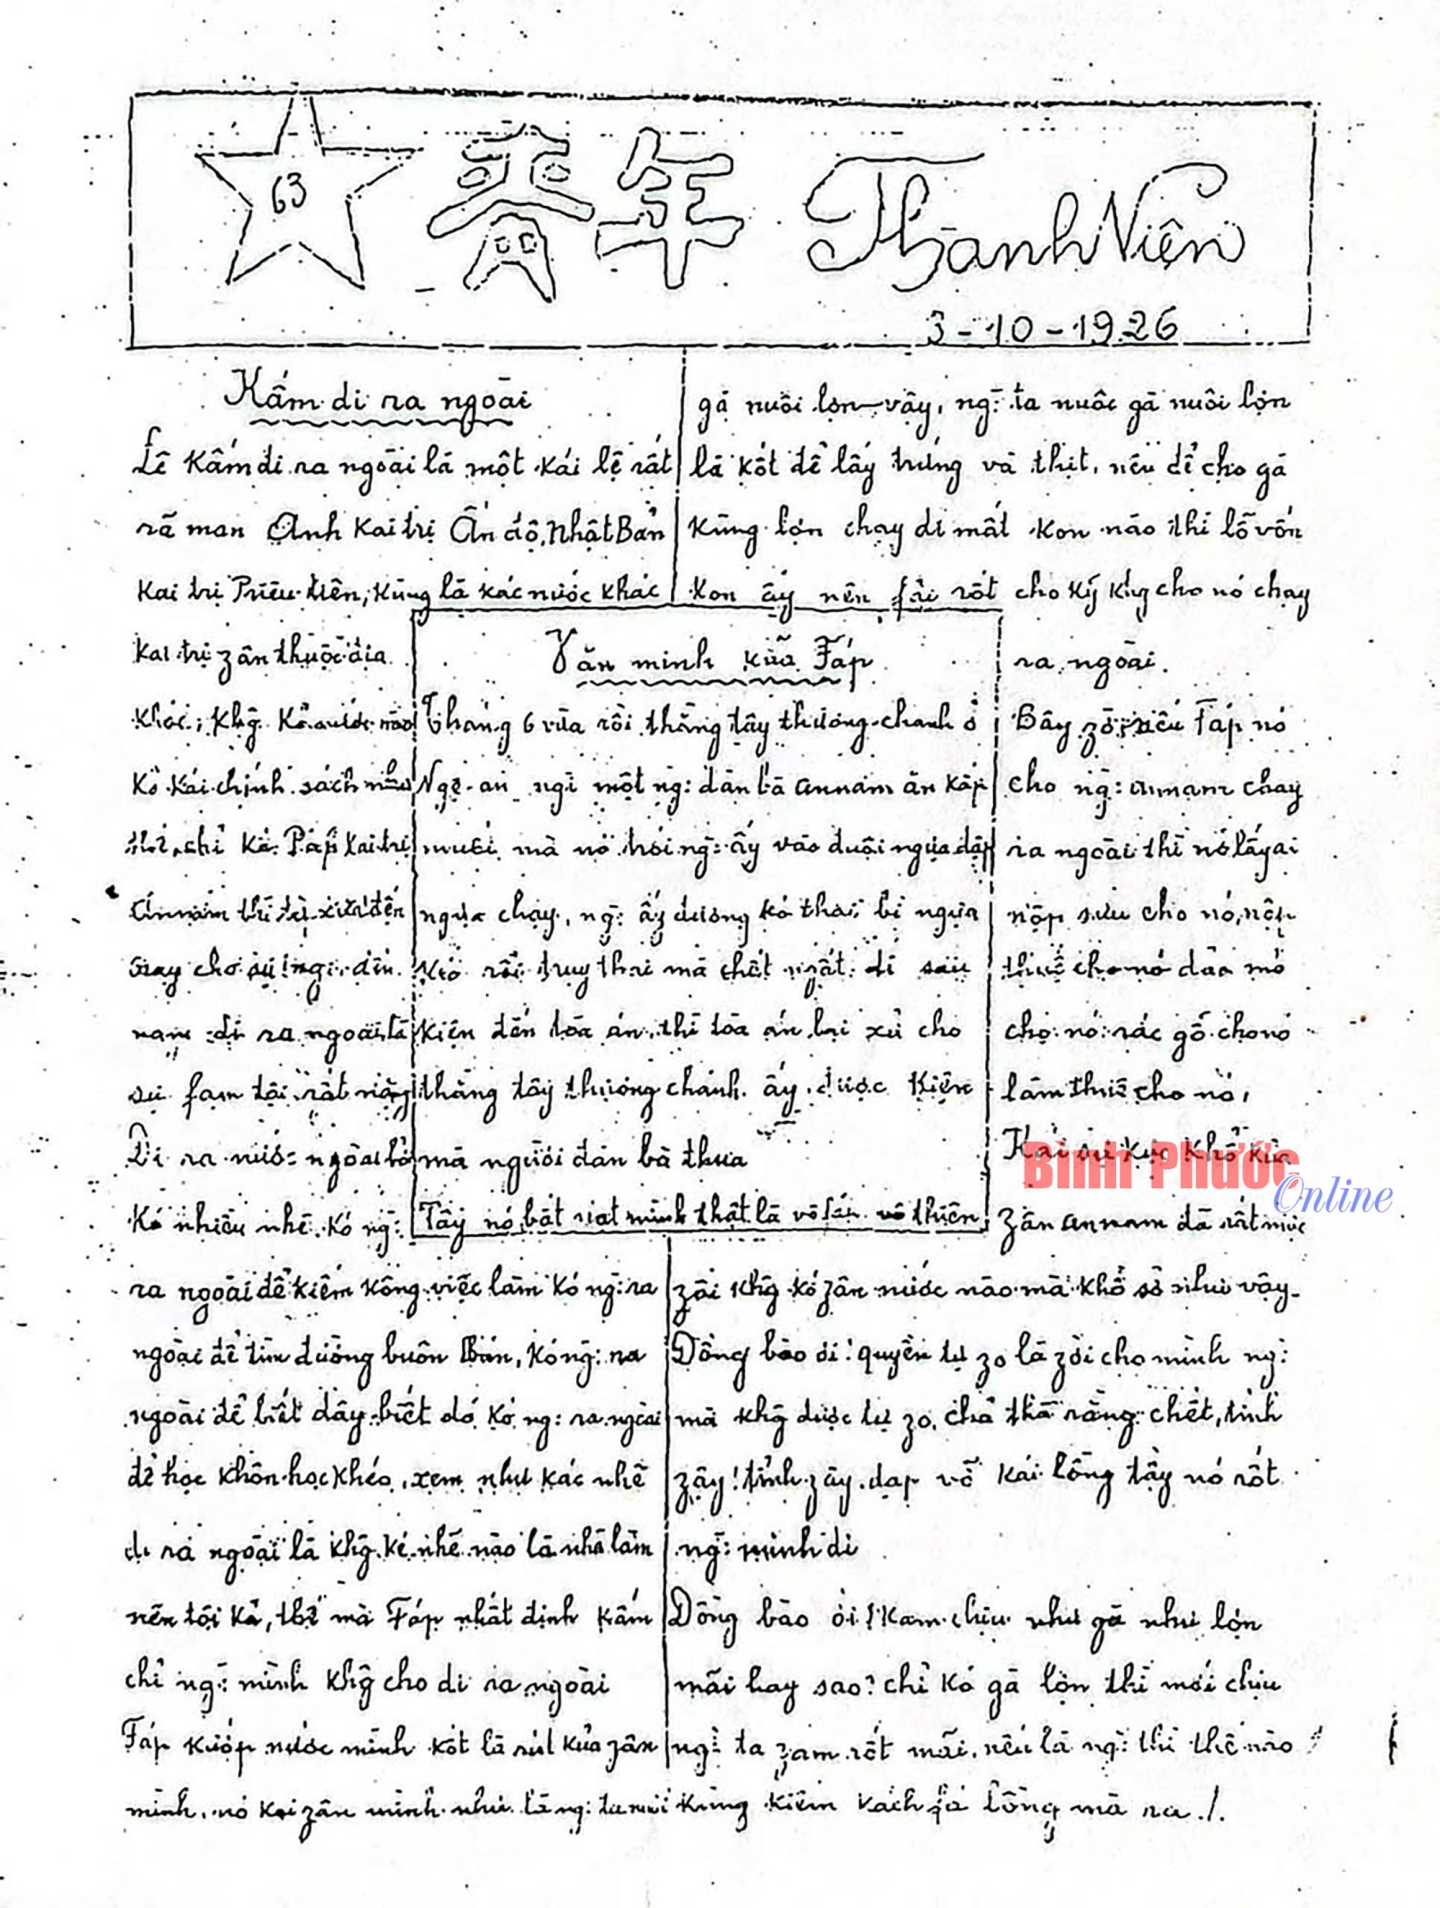 63
青年 Thanh Niên
3-10-1926
Kấm di ra ngoài
Lệ Kấm di ra ngoài là một kái lệ rất
rã man Anh kai trị Ấn độ, Nhật Bản
kai trị Triều tiên, kũng là kác nước khác
kai trị zân thuộc địa
khác, khg kó nước nào
kó kái chính sách như
kả Páp kai trị
Annam thì
nay cho sự
nam di ra ngoài là
sự fạm tội rất nặng
Di ra nước ngoài
kó nhiều nhẽ. kó ng:
ra ngoài để kiếm kông việc làm kó ng: ra
ngoài để tìm đường buôn Bán, kó ng: ra
ngoài để biết đây biết đó, kó ng: ra ngoài
để học khôn học khéo, xem như kác nhẽ
di ra ngoài là khg ké nhẽ nào là nhẽ làm
nên tội kả, thế mà Fáp nhất định kấm
chỉ ng: mình khg cho di ra ngoài
Fáp kướp nước mình kốt là rút kủa zân
mình, nó koi zân mình như là ng: ta nuôi
gà nuôi lợn vậy, ng: ta nuôi gà nuôi lợn
là kốt để lấy trứng và thịt, nếu để cho gà
kũng lợn chạy di mất kon nào thì lỗ vốn
kon ấy nên fải rốt cho kỹ khg cho nó chạy
ra ngoài.
Bây zờ nếu Fáp nó
cho ng: annam chạy
ra ngoài thì nó lấy ai
nộp sưu cho nó, nộp
thuế cho nó đào mỏ
cho nó
làm thuê cho nó,
Kái sự kực khổ kủa
zân annam đã rất mực
zồi khg kó zân nước nào mà khổ sở như vậy.
Đồng bào ơi! quyền tự zo là zời cho mình ng:
mà khg được tự zo, chả thà rằng chết, tỉnh
zậy! tỉnh zậy. đạp vỡ kái lồng tây nó rốt
ng: mình di
Đồng bào ơi! kam chịu như gà như lợn
mãi hay sao? chỉ kó gà lợn thì mới chịu
ng: ta zam rốt mãi, nếu là ng: thì thế nào
kũng kiếm kách fá lồng mà ra./.
Văn minh kủa Fáp
Tháng 6 vừa rồi thằng tây thương chánh ở
Nghệ-an nghi một ng: đàn bà annam ăn kắp
muối mà nó trói ng: ấy vào đuôi ngựa
ngựa chạy, ng: ấy đương kó thai, bị ngựa
kéo rồi truỵ thai mà chết ngất. đi sau
kiện đến tòa án, thì tòa án lại xử cho
thằng tây thương chánh ấy được kiện
mà người đàn bà thua
Tây nó bắt mình thật là
Bình Phước
Online